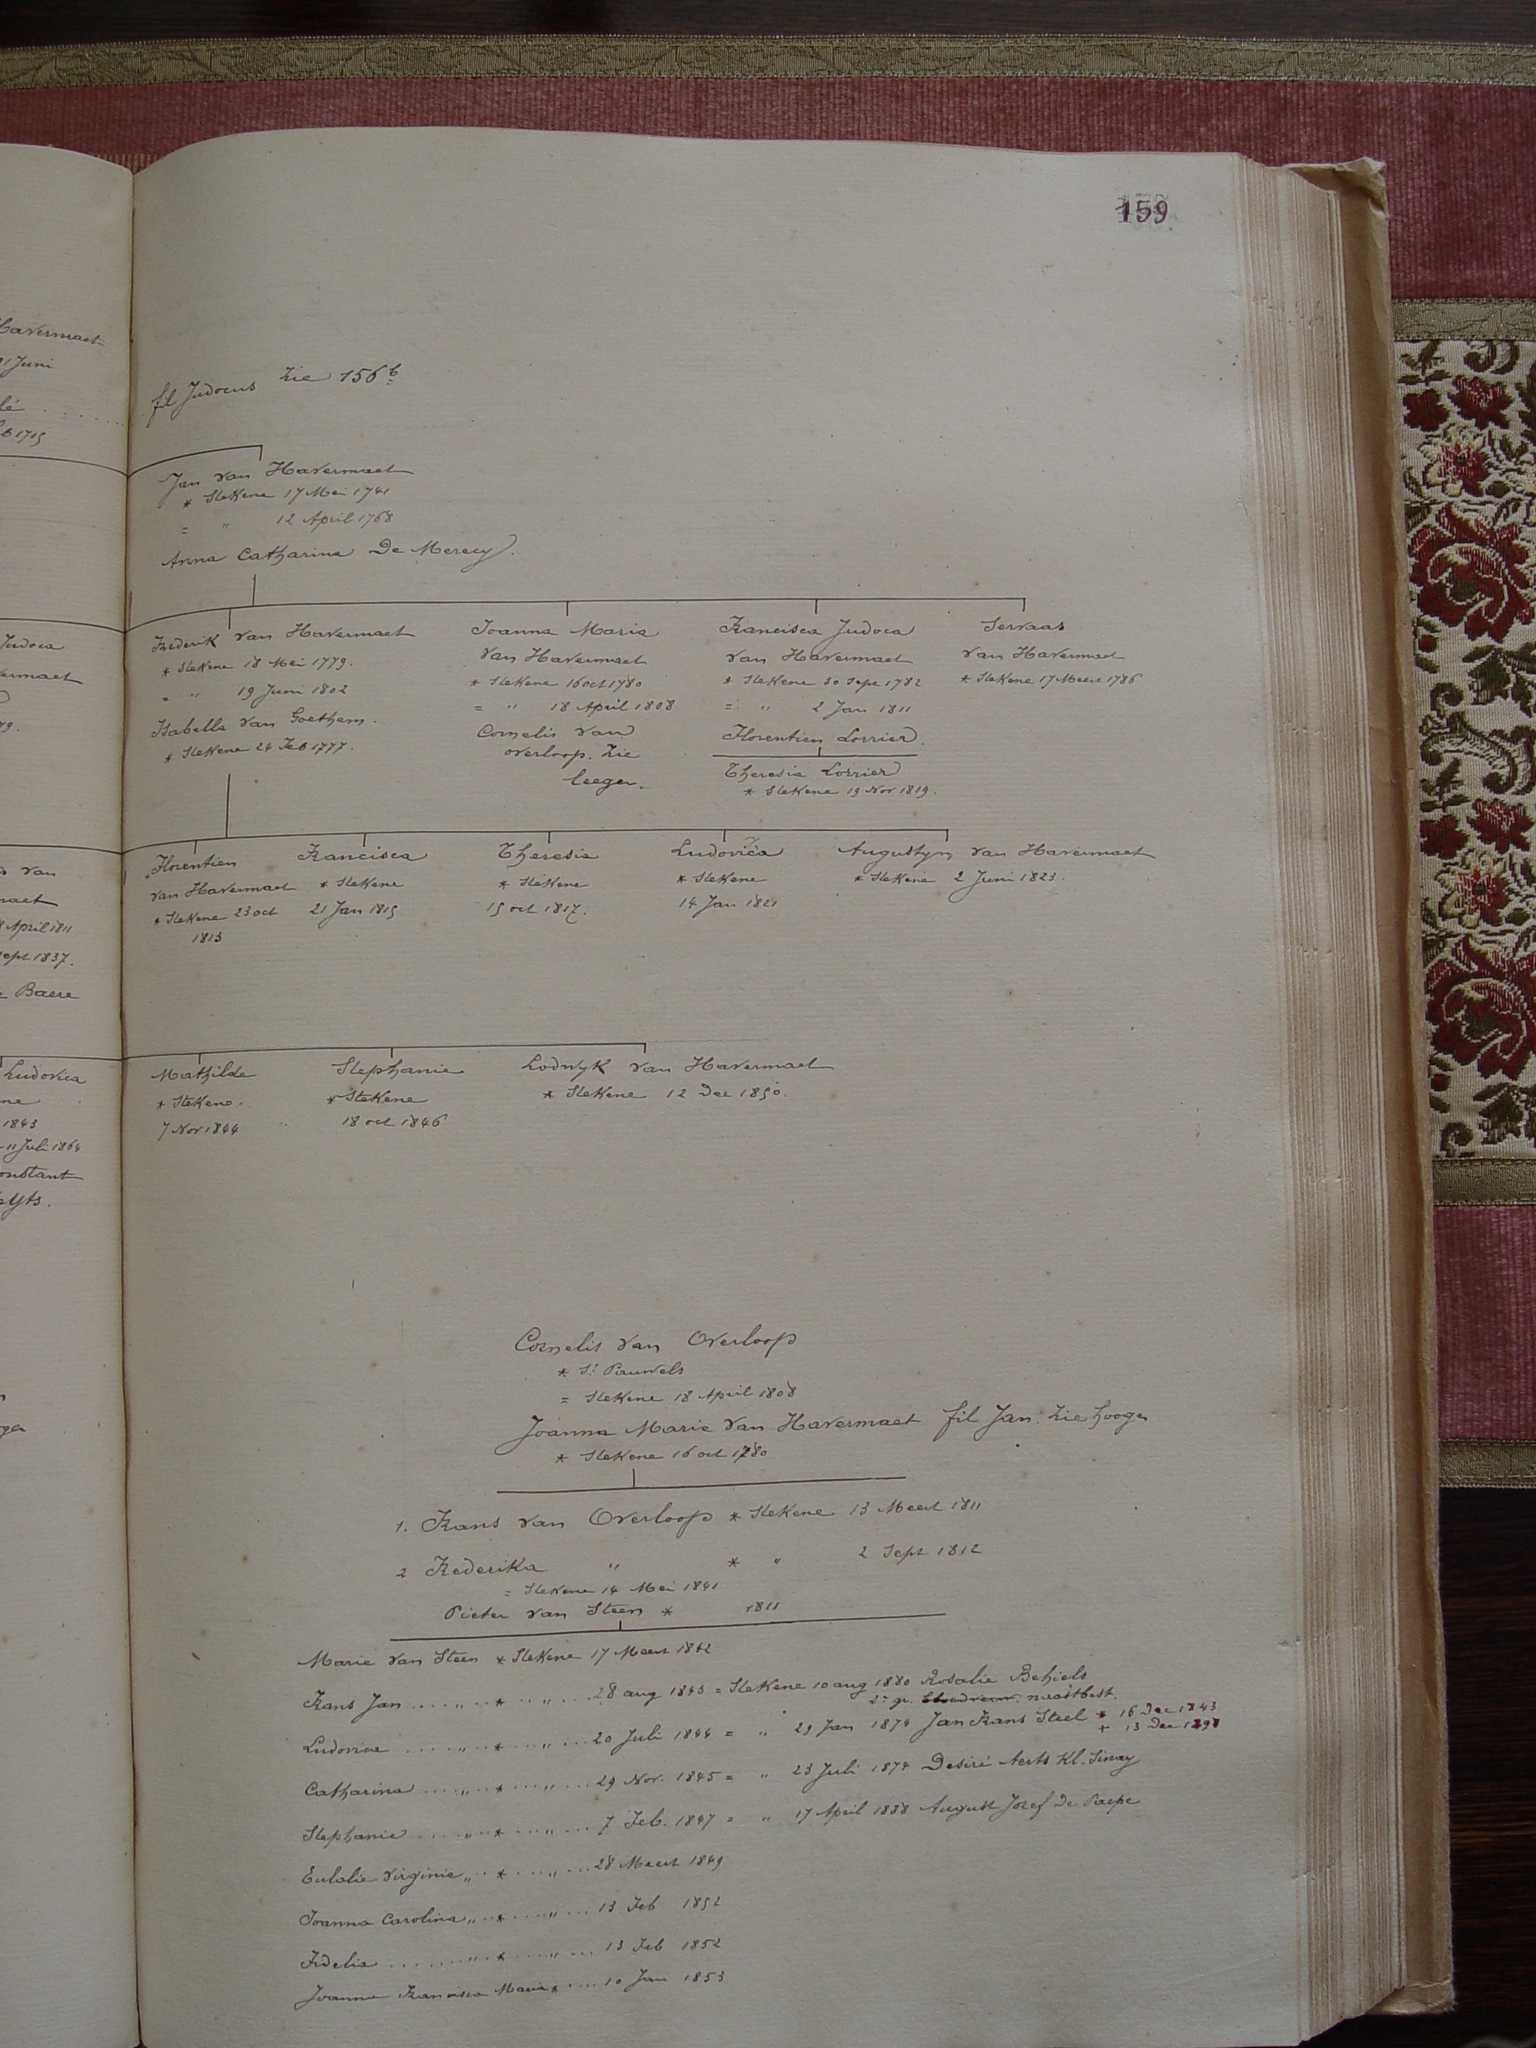 159
Havermaet
Juni
1715
fil Judocus zie 156 b
Jan van Havermaet
* Stekene 17 Mei 1741
= " 12 April 1768
Anna Catharina De Merecy.
Judoca
Frederik van Havermaet
* Stekene 18 Mei 1779.
= " 19 Juni 1802
Isabella van Goethem.
* Stekene 24 Feb 1777.
Joanna Maria
van Havermaet
* Stekene 16 oct 1780
= " 18 April 1808
Cornelis van
overloop. Zie
leeger.
Francisca Judoca
van Havermaet
* Stekene 30 Sept 1782
= " 2 Jan 1811
Florentien Lorrier.
Theresia Lorrier
* Stekene 19 Nov 1819.
Servaas
van Havermaet
* Stekene 17 Meert 1786
van
April 1811
Sept 1837.
Baere
Florentien
van Havermaet
* Stekene 23 oct
1813
Francisca
* Stekene
21 Jan 1815
Theresia
* Stekene
15 oct 1817.
Ludovica
* Stekene
14 Jan 1821
Augustyn van Havermaet
* Stekene 2 Juni 1823.
Ludovica
1843
11 Juli 1864
Mathilde
* Stekene.
7 Nov 1844
Stephanie
* Stekene
18 oct 1846
Lodwyk van Havermaet
* Stekene 12 Dec 1850.
Cornelis van Overloop
* St Pauwels
= Stekene 18 April 1808
Joanna Marie van Havermaet fil Jan. zie hooger
* Stekene 16 oct 1780
1. Frans van Overloop * Stekene 13 Meert 1811
2 Frederika " * " 2 Sept 1812
= Stekene 14 Mei 1841
Pieter van Steen * 1811
Marie van Steen * Stekene 17 Meert 1842
Frans Jan .... " .. * .. " ... 28 aug 1843 = Stekene 10 aug 1880 Rosalie Behiels
2e gr.
Ludovica .... " .. * .. " ... 20 Juli 1844 = " 29 Jan 1874 Jan Frans Steel * 16 Dec 1843
+ 13 Dec 1898
Catharina .... " .. * .. " ... 29 Nov. 1845 = " 23 Juli 1874 Desiré Aerts Kl. Sinay
Stephanie .... " .. * .. " ... 7 Feb. 1847 = " 17 April 1888 August Jozef De Paepe
Eulalie Virginie " .. * ... " ... 28 Meert 1849
Joanna Carolina " .. * ... " ... 13 Feb 1852
Fidelia ...... " .. * .. " ... 13 Feb 1852
Joanna Francisca Maria * .... 10 Jan 1853